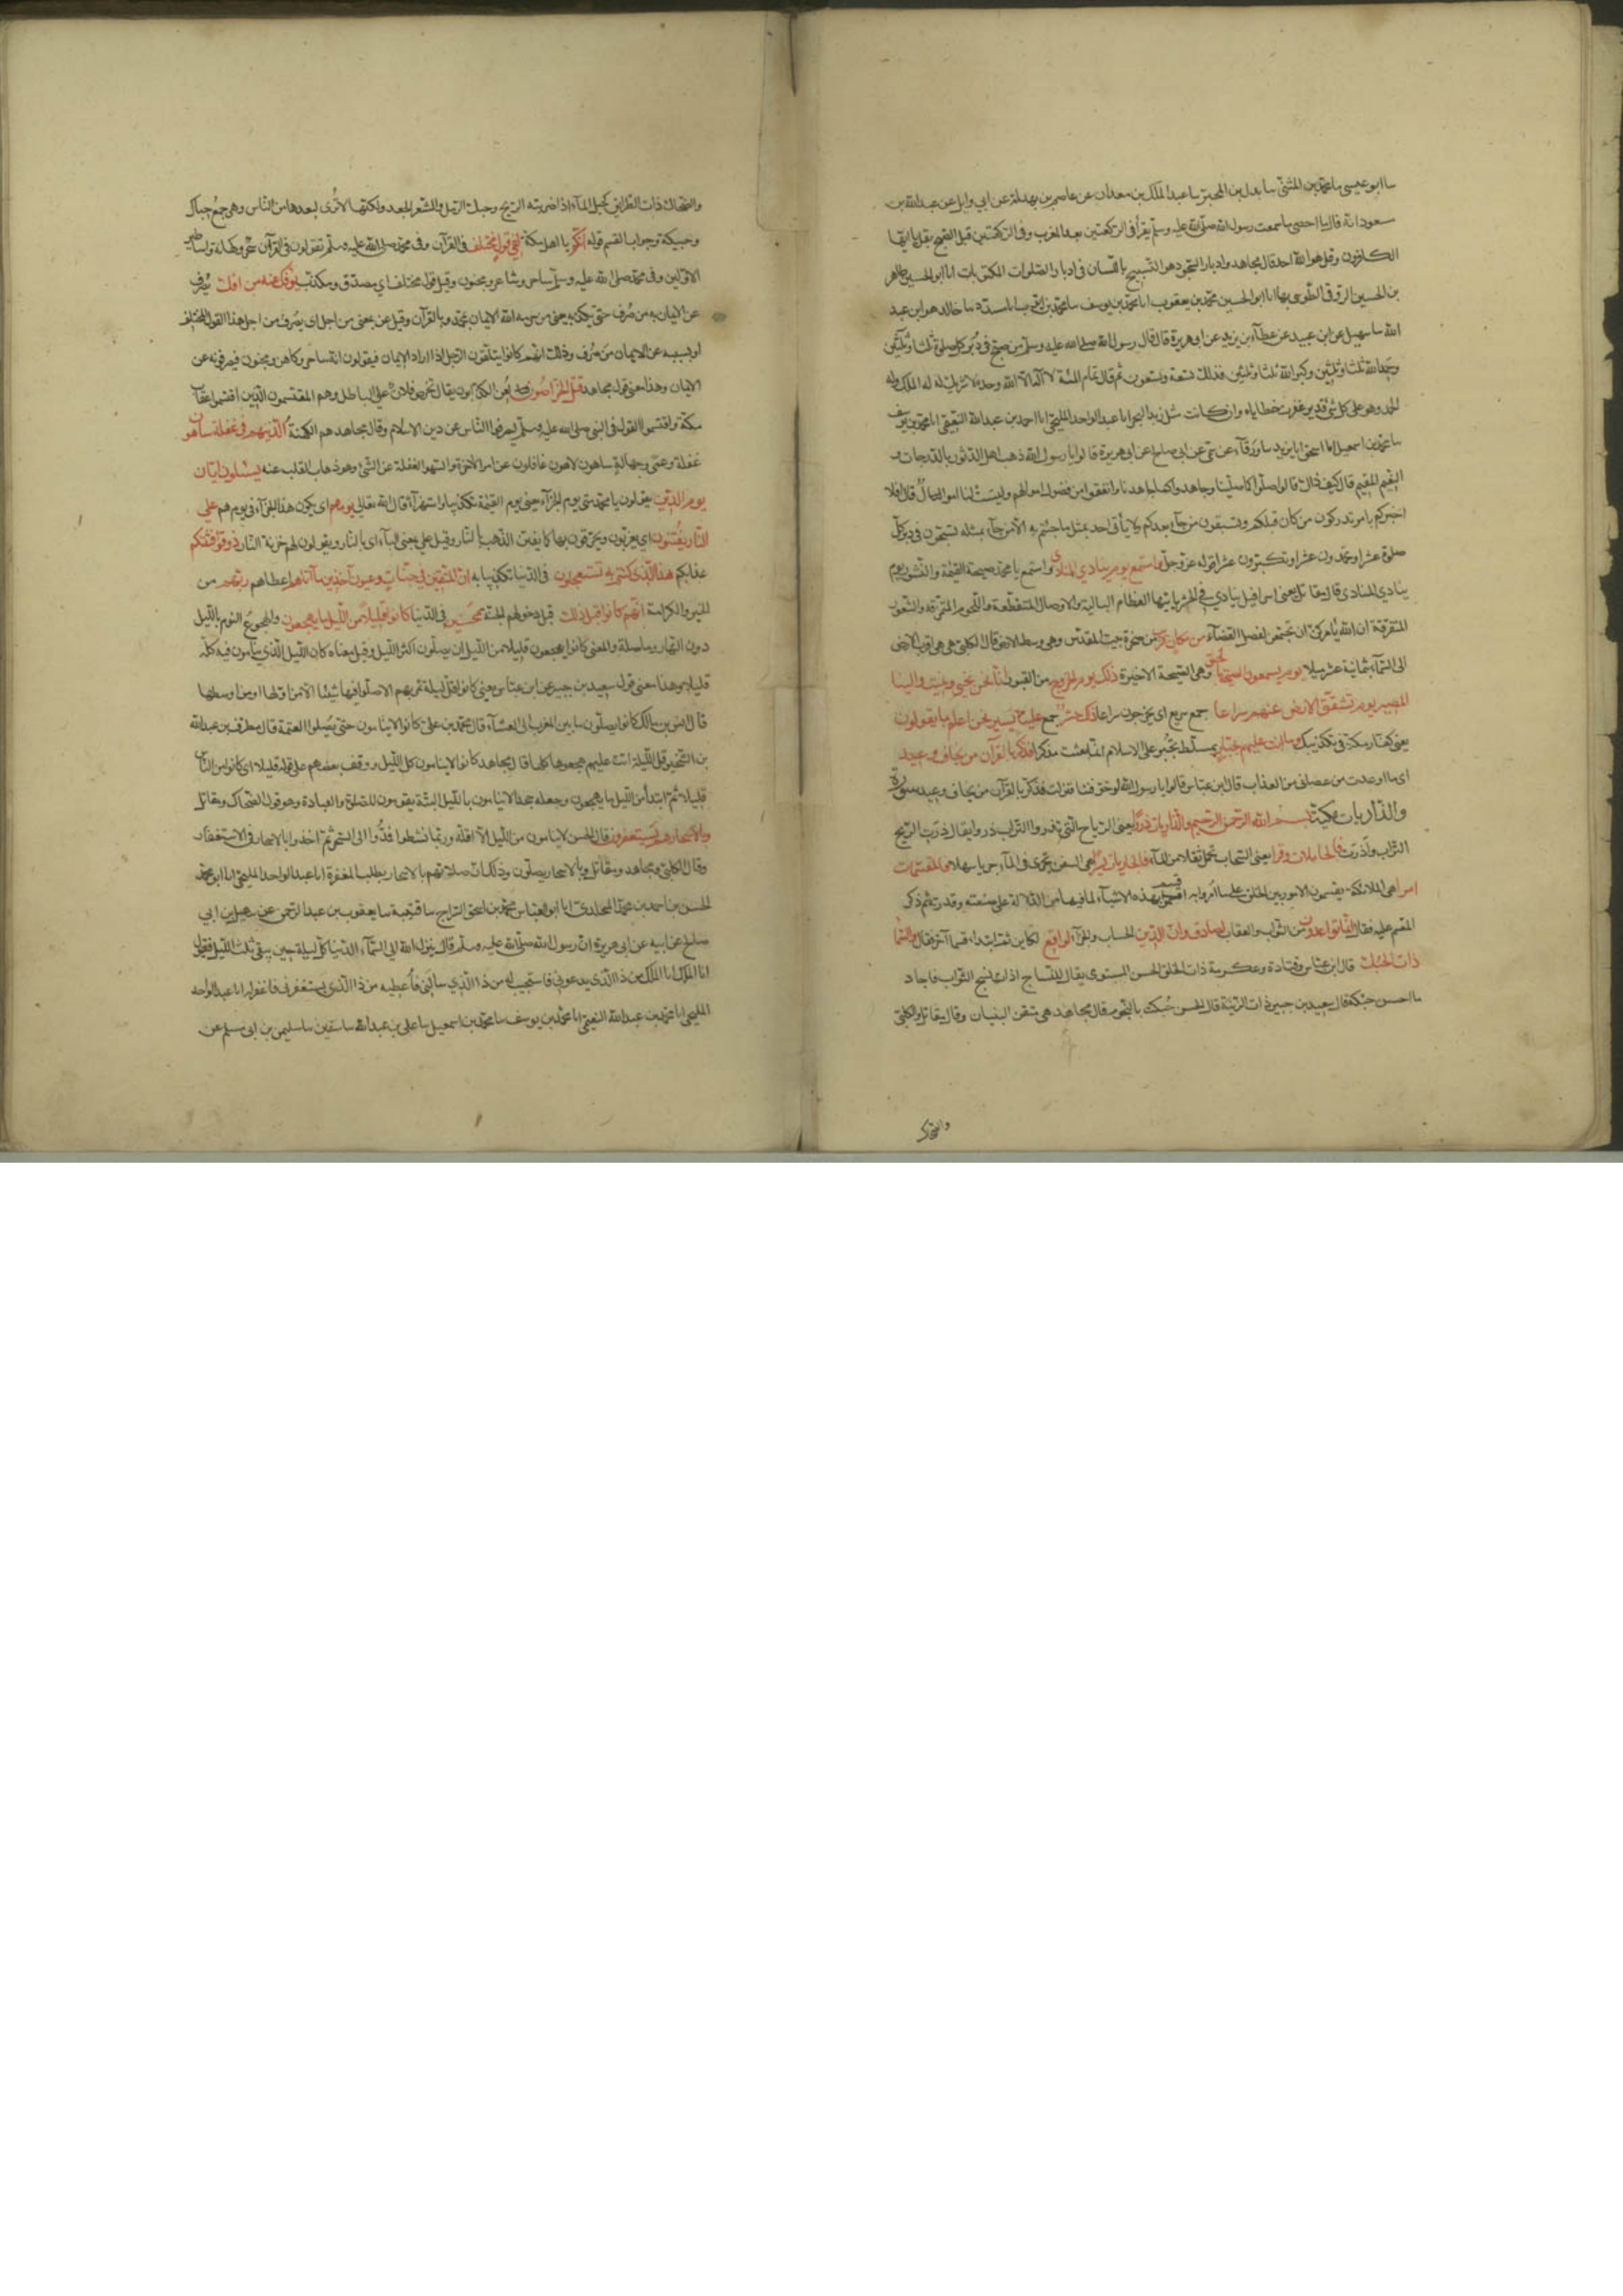 سا ابو عيسى سا محمد بن المثنى سا بدل بن المحبر سا عبد الملك بن معدان عن عاصم بن بهدلة عن ابي وايل عن عبد الله بن
مسعود انه قال ما احصى ما سمعت رسول الله صلى الله عليه وسلم يقرأ في الركعتين بعد المغرب وفي الركعتين قبل الفجر بقل يا ايها
الكافرون وقل هو الله احد قال مجاهد وادبار السجود هو التسبيح باللسان في ادبار الصلوات المكتوبات انا ابو الحسين طاهر
بن الحسين الروقي الطوسي بها انا ابو الحسين محمد بن يعقوب انا محمد بن يوسف سا محمد بن سا مسدد سا خالد هو ابن عبد
الله سا سهيل عن ابن عبيد عن عطاء بن يزيد عن ابي هريرة قال قال رسول الله صلى الله عليه وسلم من سبح في دبر كل صلوة ثلثا وثلثين
وحمد الله ثلثا وثلثين وكبر الله ثلثا وثلثين فذلك تسعة وتسعون ثم قال تمام المئة لا اله الا الله وحده لا شريك له له الملك وله
الحمد وهو على كل شئ قدير غفرت خطاياه وان كانت مثل زبد البحر انا عبد الواحد المليحي انا احمد بن عبد الله النعيمي انا محمد بن يوسف
سا محمد بن اسمعيل انا اسحق انا يزيد سا ورقآء عن سمي عن ابي صالح عن ابي هريرة قالوا يا رسول الله ذهب اهل الدثور بالدرجات و
النعيم المقيم قال كيف ذاك قالوا صلوا كما صلينا وجاهدوا كما جاهدنا وانفقوا من فضول اموالهم وليست لنا اموال قال افلا
اخبركم بامر تدركون من كان قبلكم وتسبقون من جآء بعدكم ولا يأتي احد بمثل ما جئتم به الا من جآء بمثله تسبحون في دبر كل
صلوة عشرا وتحمدون عشرا وتكبرون عشرا قوله عز وجل واستمع يوم ينادي المنادي واستمع يا محمد صيحة القيمة والنشور يوم
ينادي المنادي قال مقاتل يعني اسرافيل ينادي في الحشر يا ايتها العظام البالية والاوصال المتقطعة واللحوم المتمزقة والشعور
المتفرقة ان الله يأمركن ان تجتمعن لفصل القضآء من مكان قريب من صخرة بيت المقدس وهي وسط الارض قال الكلبي هي اقرب الارض
الى السمآء بثمانية عشر ميلا يوم يسمعون الصيحة بالحق وهي الصيحة الاخيرة ذلك يوم الخروج من القبور انا نحن نحيي ونميت والينا
المصير يوم تشقق الارض عنهم سراعا جمع سريع اي يخرجون سراعا ذلك حشر جمع علينا يسير نحن اعلم بما يقولون
يعني كفار مكة في تكذيبك وما انت عليهم بجبار بمسلط تجبرهم على الاسلام انما بعثت مذكرا فذكر بالقرآن من يخاف وعيد
اي ما اوعدت من عصاني من العذاب قال ابن عباس قالوا يا رسول الله لو خوفتنا فنزلت فذكر بالقرآن من يخاف وعيد سورة
والذاريات مكية بسم الله الرحمن الرحيم والذاريات ذروا يعني الرياح التي تذروا التراب ذروا يقال ذرت الريح
التراب واذرت فالحاملات وقرا يعني السحاب تحمل ثقلا من المآء فالجاريات يسرا هي السفن تجري في المآء جريا سهلا فالمقسمات
امرا هي الملائكة يقسمون الامور بين الخلق على ما امروا به اقسم بهذه الاشيآء لما فيها من الدلالة على صنعته وقدرته ثم ذكر
المقسم عليه فقال انما توعدون من الثواب والعقاب لصادق وان الدين الحساب والجزآء لواقع لكاين ثم ابتدأ قسما آخر فقال والسمآ
ذات الحبك قال ابن عباس وقتادة وعكرمة ذات الخلق الحسن المستوي يقال للنساج اذا نسج الثوب فاجاد
ما احسن حبكه قال سعيد بن جبير ذات الزينة قال الحسن حبكت بالنجوم قال مجاهد هي متقن البنيان وقال مقاتل والكلبي
والضحاك
والضحاك ذات الطرائق كحبك المآء اذا ضربته الريح وحبك الرمل والشعر الجعد ولكنها لا ترى لبعدها من الناس وهي جمع حباك
وحبيكة وجواب القسم قوله انكم يا اهل مكة لفي قول مختلف في القرآن وفي محمد صلى الله عليه وسلم تقولون في القرآن سحر وكهانة واساطير
الاولين وفي محمد صلى الله عليه وسلم ساحر وشاعر ومجنون وقيل قول مختلف اي مصدق ومكذب يؤفك عنه من افك يصرف
عن الايمان به من صرف حتى يكذبه يعني من حرمه الله الايمان بمحمد وبالقرآن وقيل عن بمعنى من اجل اي يصرف من اجل هذا القول المختلف
او بسببه عن الايمان من صرف وذلك انهم كانوا يتلقون الرجل اذا اراد الايمان فيقولون انه ساحر وكاهن ومجنون فيصرفونه عن
الايمان وهذا معنى قول مجاهد قتل الخراصون لعن الكذابون يقال تخرص فلان علي الباطل وهم المقتسمون الذين اقتسموا عقاب
مكة واقتسموا القول في النبي صلى الله عليه وسلم ليصرفوا الناس عن دين الاسلام وقال مجاهد هم الكهنة الذين هم في غفلة ساهون
غفلة وعمى وجهالة ساهون لاهون غافلون عن امر الآخرة والسهو الغفلة عن الشئ وهو ذهاب القلب عنه يسئلون ايان
يوم الدين يقولون يا محمد متى يوم الجزآء يعني يوم القيمة تكذيبا واستهزآء قال الله تعالى يوم هم اي يكون هذا الجزآء في يوم هم على
النار يفتنون اي يعذبون ويحرقون بها كما يفتن الذهب بالنار وقيل على بمعنى البآء اي بالنار ويقولون لهم خزنة النار ذوقوا فتنتكم
عذابكم هذا الذي كنتم به تستعجلون في الدنيا تكذيبا به ان المتقين في جنات وعيون آخذين ما آتاهم اعطاهم ربهم من
الخير والكرامة انهم كانوا قبل ذلك قبل دخولهم الجنة محسنين في الدنيا كانوا قليلا من الليل ما يهجعون والهجوع النوم بالليل
دون النهار وما صلة والمعنى كانوا يهجعون قليلا من الليل اي يصلون اكثر الليل وقيل معناه كان الليل الذي ينامون فيه كله
قليلا وهذا معنى قول سعيد بن جبير عن ابن عباس يعني كانوا قل ليلة تمر بهم الا صلوا فيها شيئا اما من اولها او من اوسطها
قال انس بن مالك كانوا يصلون ما بين المغرب الى العشآء قال محمد بن علي كانوا لا ينامون حتى يصلوا العتمة قال مطرف بن عبد الله
بن الشخير قل ليلة اتت عليهم هجعوها كلها قال مجاهد كانوا لا ينامون كل الليل ووقف بعضهم على قوله قليلا اي كانوا من الناس
قليلا ثم ابتدأ من الليل ما يهجعون وجعله جحدا لا ينامون بالليل البتة يقومون للصلوة والعبادة وهو قول الضحاك ومقاتل
وبالاسحار هم يستغفرون قال الحسن لا ينامون من الليل الا اقله وربما نشطوا فمدوا الى السحر ثم اخذوا بالاسحار في الاستغفار
وقال الكلبي ومجاهد ومقاتل وبالاسحار يصلون وذلك ان صلاتهم بالاسحار بطلب المغفرة انا عبد الواحد المليحي انا ابو محمد
الحسن بن احمد بن محمد المخلدي انا ابو العباس محمد بن اسحق السراج سا قتيبة سا يعقوب بن عبد الرحمن عن سهيل بن ابي
صالح عن ابيه عن ابي هريرة ان رسول الله صلى الله عليه وسلم قال ينزل الله الى السمآء الدنيا كل ليلة حين يبقى ثلث الليل فيقول
انا الملك انا الملك من ذا الذي يدعوني فاستجيب له من ذا الذي يسألني فأعطيه من ذا الذي يستغفرني فاغفر له انا عبد الواحد
المليحي انا محمد بن عبد الله النعيمي انا محمد بن يوسف سا محمد بن اسمعيل سا علي بن عبد الله سا سفين سا سليمن بن ابي مسلم عن